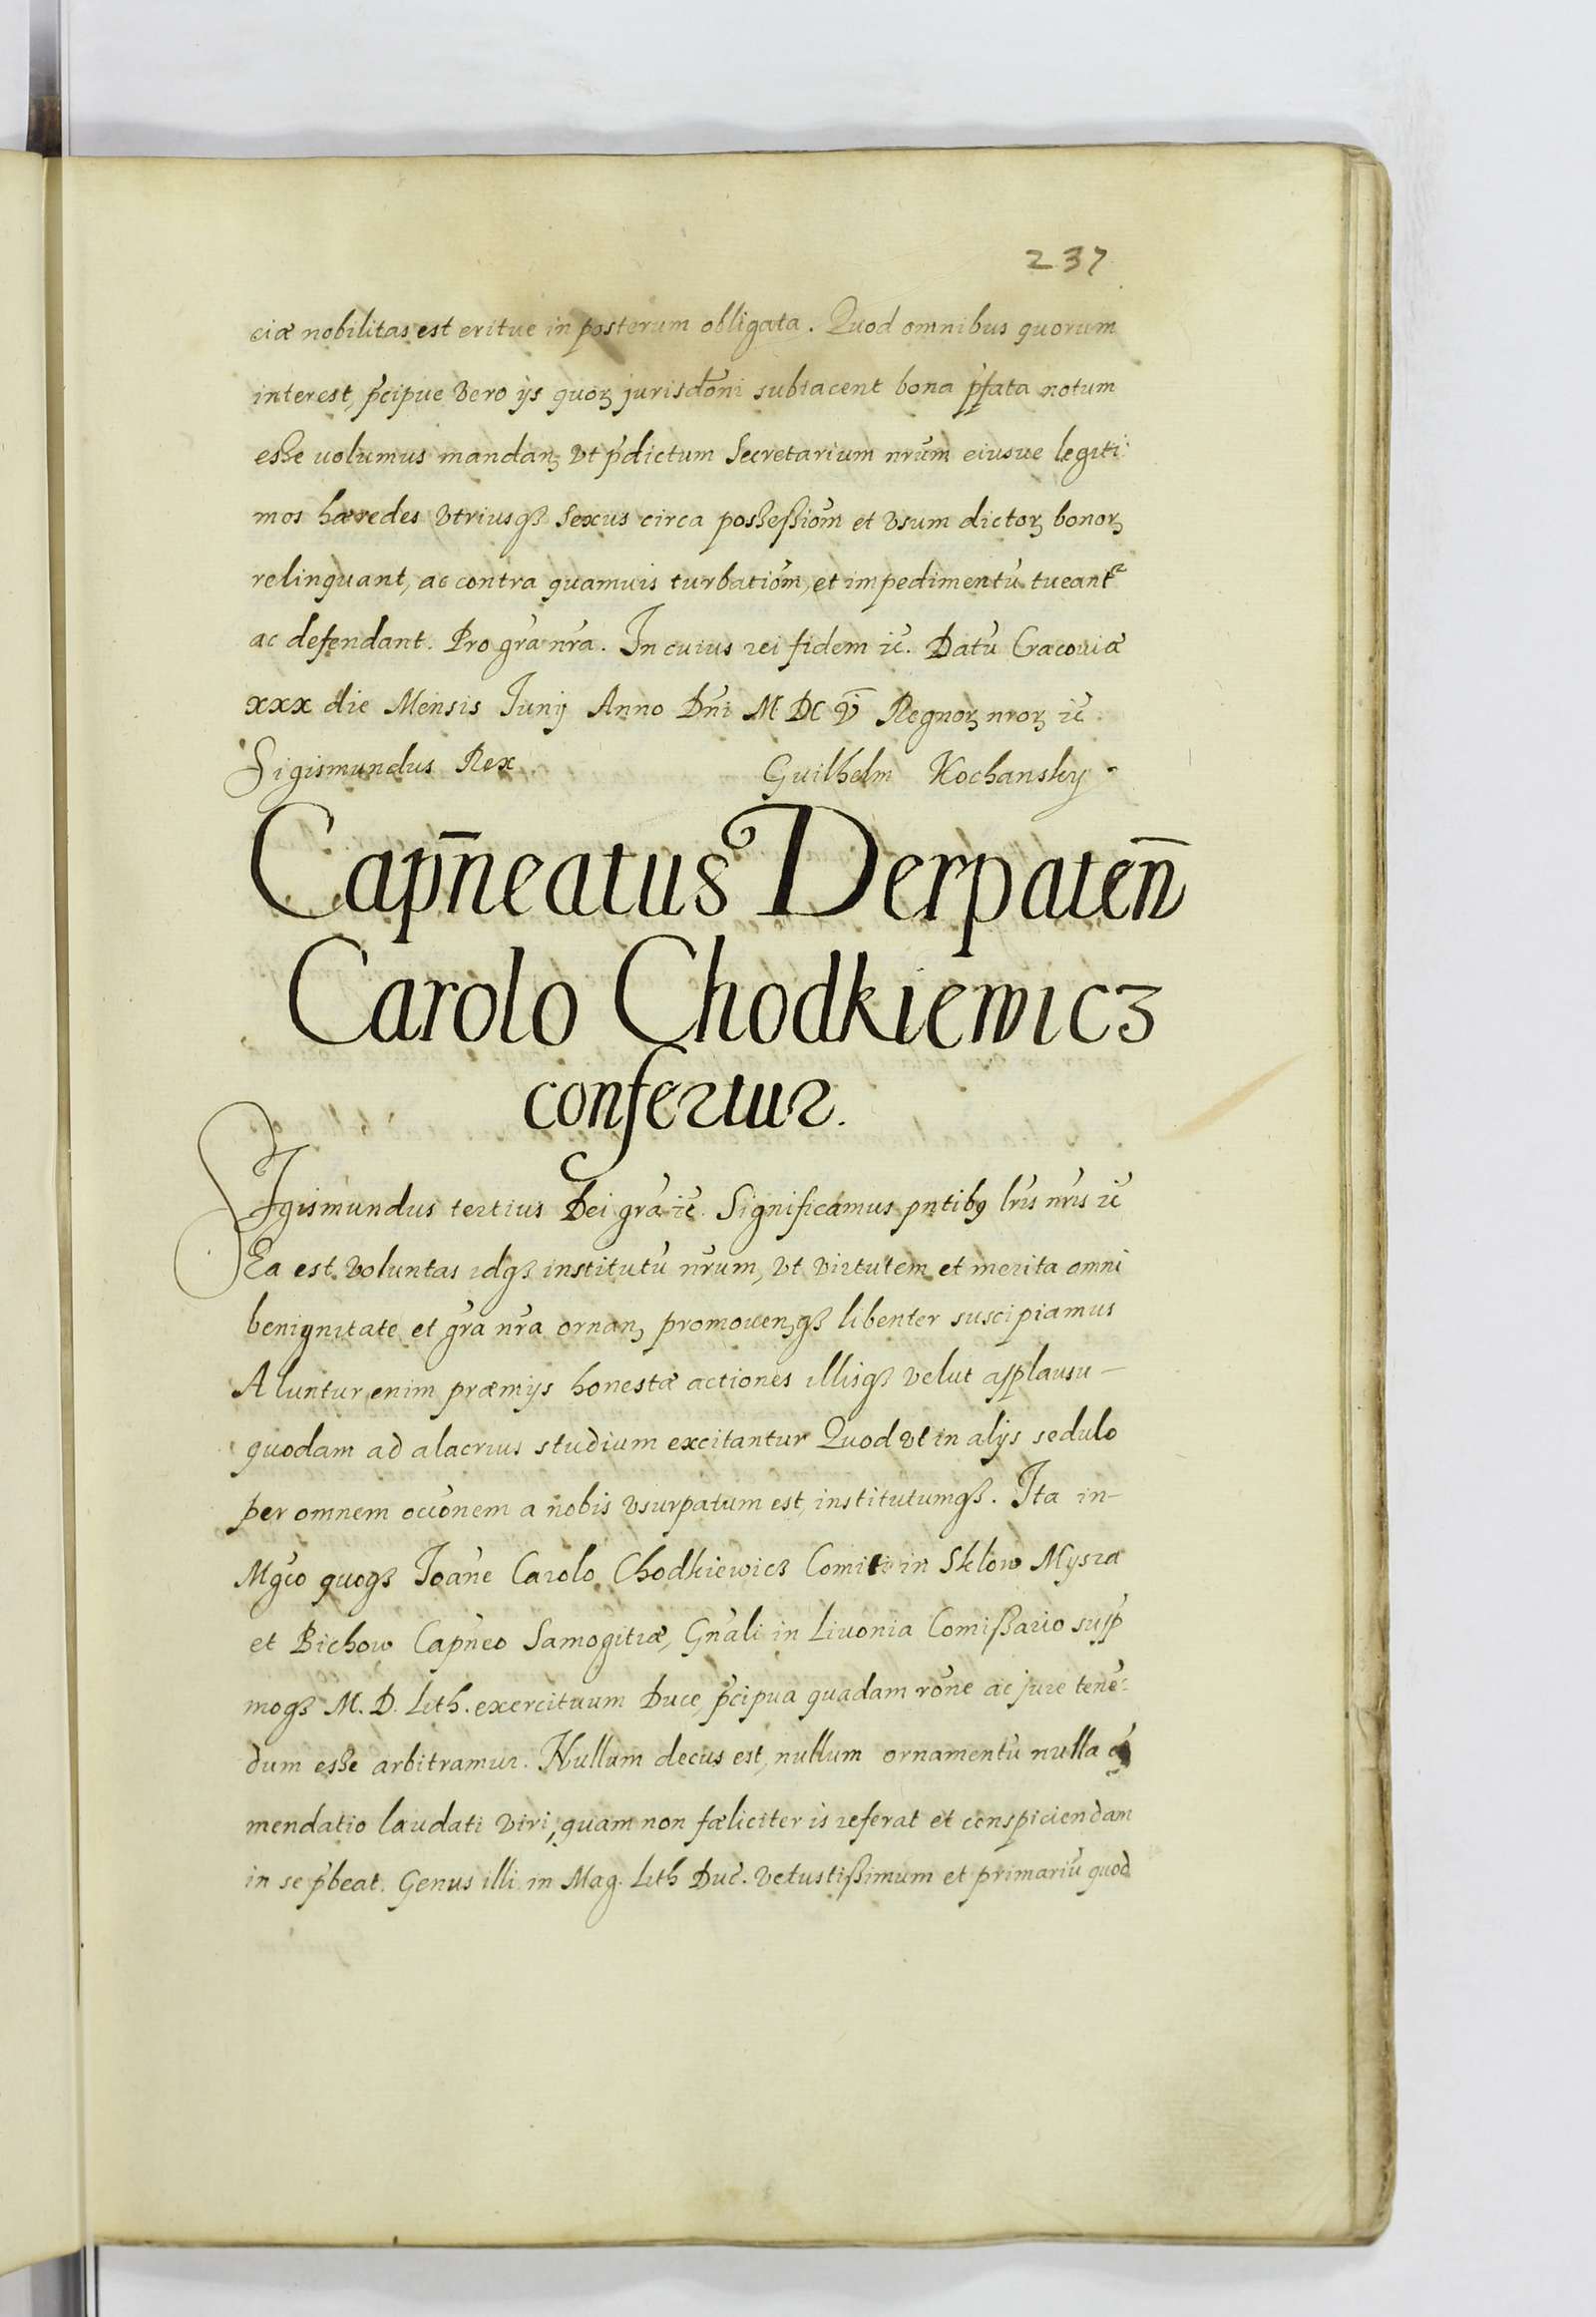 237
ciæ nobilitas est eritue in posterum obligata. Quod omnibus quorum
interest, p̃cipue vero ijs quoꝝ jurisdõni subiacent bona p̃fata notum
esse uolumus mandanꝫ vt p̃dictum Secretarium nr̃um eiusue legiti:
mos hæredes vtriusqꝫ sexus circa possessiom̃ et vsum dictoꝝ bonoꝝ
relinquant, ac contra quamuis turbatiom̃, et impedimentũ tueantʳ
ac defendant. Pro gr̃a nr̃a. In cuius rei fidem ic̃. Datũ Cracouiæ
xxx die Mensis Junij Anno Dñi M DC V Regnoꝝ nroꝝ ic̃.
Sigismundus Rex Guilhelm Kochansky
Capñeatus Derpateñ
Carolo Chodkiewicz
confertur.
Sigismundus tertius Dei gr̃a ic̃. Significamus pntibꝯ lr̃is nr̃is ic̃
Ea est voluntas idqꝫ institutũ nr̃um, vt virtutem et merita omni
benignitate et gr̃a nr̃a ornanꝫ promouenꝫqꝫ libenter suscipiamus
Aluntur enim præmijs honestæ actiones illisqꝫ velut applausu-
quodam ad alacrius studium excitantur Quod vt in alijs sedulo
per omnem occõnem a nobis vsurpatum est, institutumqꝫ. Ita in-
Mgc̃o quoqꝫ Joañe Carolo Chodkiewicz Comite in Sklow Mysza
et Bichow Capñeo Samogitiæ, Gñali in Liuonia Comissario sup̃
moqꝫ M. D. Lith. exercituum Duce, p̃cipua quadam rõne ac jure tenẽ:
dum esse arbitramur. Nullum decus est, nullum ornamentũ nulla cõ
mendatio laudati viri, quam non fæliciter is referat et conspiciendam
in se p̃beat. Genus illi in Mag. Lith Duc̃. vetustissimum et primariũ quod